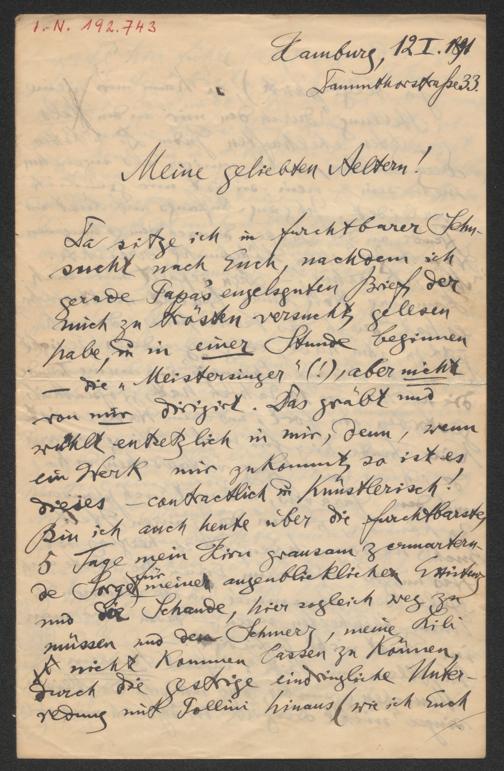 I.-N. 192.743
Hamburg, 12 I. 1891
Dammthorstraße 33.
Meine geliebten Aeltern!
Da sitze ich in furchtbarer Sehn-
sucht nach Euch, nachdem ich
gerade Papa's engelsguten Brief, der
mich zu trösten versucht, gelesen
habe, u in einer Stunde beginnen
— die „Meistersinger" (!), aber nicht
von mir dirigirt. Das gräbt und
wühlt entsetzlich in mir, denn, wenn
ein Werk mir zukommt, so ist es
dieses — contractlich u Künstlerisch!
Bin ich auch heute über die furchtbarste,
5 Tage mein Hirn grausam zermartern-
de Sorge für meine augenblickliche
und die Schande, hier sogleich weg zu
müssen und den Schmerz, meine Lili
nicht kommen lassen zu können,
durch die gestrige eindringliche Unter-
redung mit Pollini hinaus (wie ich Euch